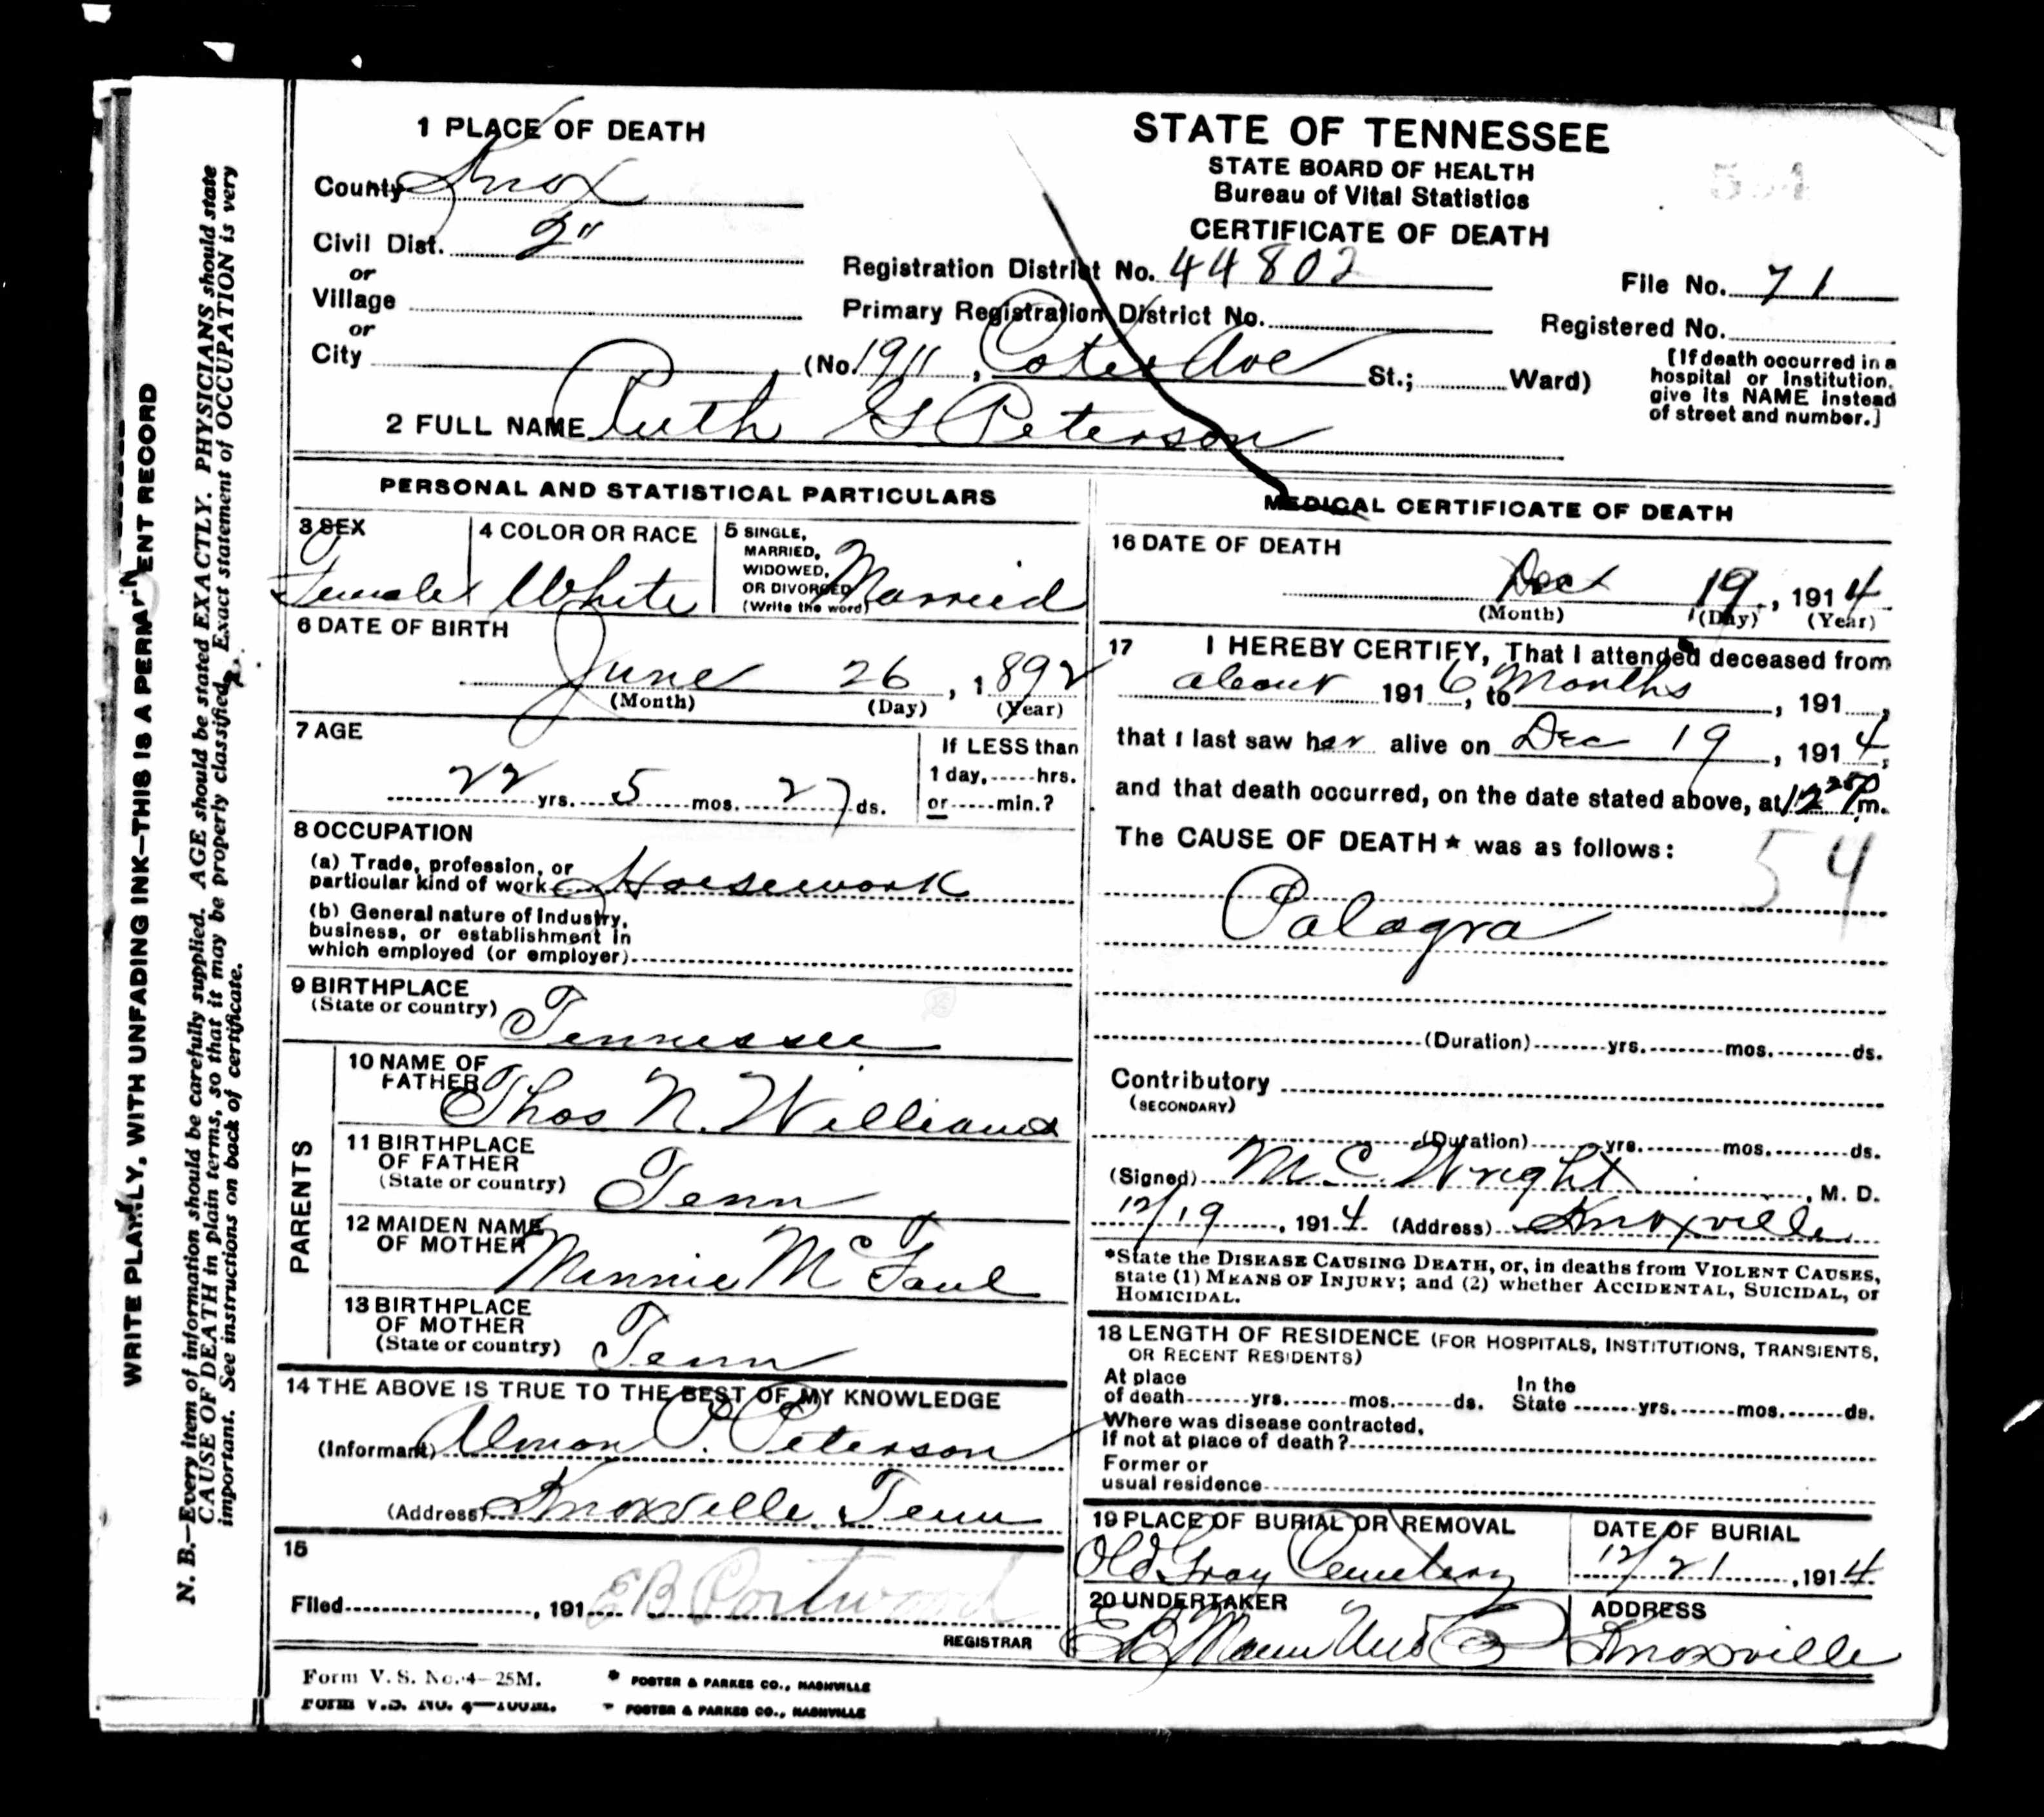 1 PLACE OF DEATH
County Knox
Civil Dist. 2"
or
Village
or
City
STATE OF TENNESSEE
STATE BOARD OF HEALTH
Bureau of Vital Statistics
CERTIFICATE OF DEATH
Registration District No. 44802
File No. 71
Primary Registration District No.
Registered No.
(No. 1911, Ave St.; Ward)
[If death occurred in a
hospital or institution,
give its NAME instead
of street and number.]
2 FULL NAME Ruth G Peterson
PERSONAL AND STATISTICAL PARTICULARS
3 SEX
Female
4 COLOR OR RACE
White
5 SINGLE,
MARRIED,
WIDOWED,
OR DIVORCED
(Write the word)
Married
6 DATE OF BIRTH
June 26, 1892
(Month) (Day) (Year)
7 AGE
22 yrs. 5 mos. 27 ds.
If LESS than
1 day, hrs.
or min.?
8 OCCUPATION
(a) Trade, profession, or
particular kind of work Housework
(b) General nature of Industry,
business, or establishment in
which employed (or employer)
9 BIRTHPLACE
(State or country)
Tennessee
PARENTS
10 NAME OF
FATHER
Thos N. Williams
11 BIRTHPLACE
OF FATHER
(State or country)
Tenn
12 MAIDEN NAME
OF MOTHER
Minnie McFaul
13 BIRTHPLACE
OF MOTHER
(State or country)
Tenn
14 THE ABOVE IS TRUE TO THE BEST OF MY KNOWLEDGE
(Informant) Almon P. Peterson
(Address) Knoxville, Tenn
15
Filed , 191 EB Portwood
REGISTRAR
MEDICAL CERTIFICATE OF DEATH
16 DATE OF DEATH
Dec 19, 1914
(Month) (Day) (Year)
17 I HEREBY CERTIFY, That I attended deceased from
about 191 6, to Months, 191
that I last saw her alive on Dec 19, 1914,
and that death occurred, on the date stated above, at 12 25 P m.
The CAUSE OF DEATH* was as follows:
54
Palagra
(Duration) yrs. mos. ds.
Contributory
(SECONDARY)
(Duration) yrs. mos. ds.
(Signed) M. C. Wright, M. D.
12/19, 1914 (Address) Knoxville
*State the DISEASE CAUSING DEATH, or, in deaths from VIOLENT CAUSES,
state (1) MEANS OF INJURY; and (2) whether ACCIDENTAL, SUICIDAL, or
HOMICIDAL.
18 LENGTH OF RESIDENCE (FOR HOSPITALS, INSTITUTIONS, TRANSIENTS,
OR RECENT RESIDENTS)
At place
of death yrs. mos. ds.
In the
State yrs. mos. ds.
Where was disease contracted,
If not at place of death?
Former or
usual residence
19 PLACE OF BURIAL OR REMOVAL
Old Gray Cemetery
DATE OF BURIAL
12/21, 1914
20 UNDERTAKER
EB Mann Und Co
ADDRESS
Knoxville
Form V. S. No. 4-25M.
* FOSTER & PARKES CO., NASHVILLE
Form V.S. No. 4—100M.
FOSTER & PARKES CO., NASHVILLE
WRITE PLAINLY, WITH UNFADING INK—THIS IS A PERMANENT RECORD
N. B.—Every item of information should be carefully supplied. AGE should be stated EXACTLY. PHYSICIANS should state
CAUSE OF DEATH in plain terms, so that it may be properly classified. Exact statement of OCCUPATION is very
important. See instructions on back of certificate.